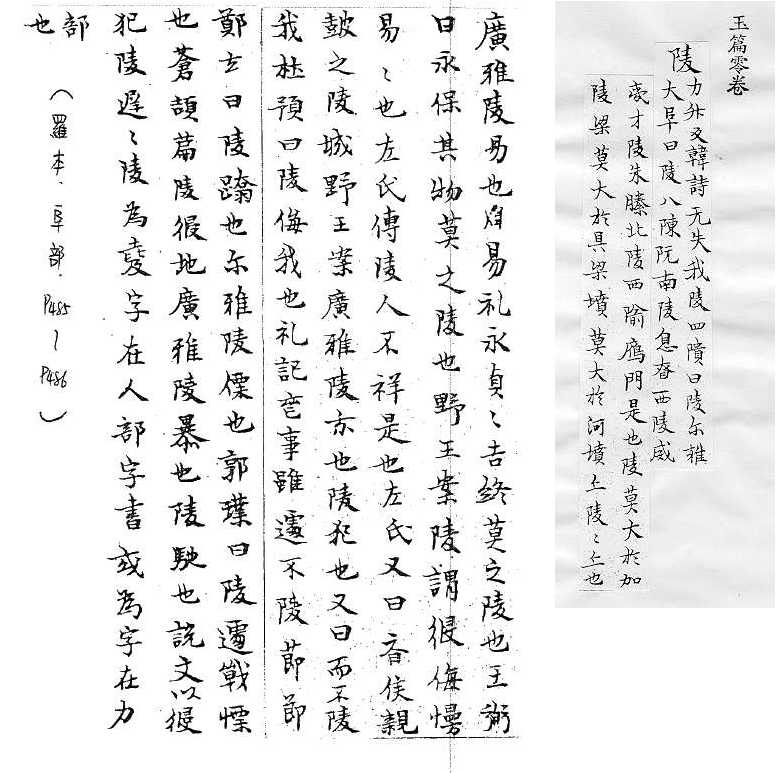 玉篇零卷
陵
力升反韓詩无失我陵四隤曰陵尓雅
大阜曰陵八陳阮南陵息昚西陵威
夌才陵朱滕北陵西隃鴈門是也陵莫大於加
陵梁莫大於具梁墳莫大於河墳上陵〻上也
廣雅陵易也周易礼永貞〻吉終莫之陵也王弼
曰永保其物莫之陵也野王案陵謂侵侮慢
易〻也左氏傳陵人不祥是也左氏又曰吝侯親
皷之陵城野王案廣雅陵亦也陵犯也又曰而不陵
我杜預曰陵侮我也礼記喪事雖遽不陵莭莭
鄭玄曰陵躐也尓雅陵慄也郭璞曰陵遽戰慄
也蒼頡篇陵侵地廣雅陵暴也陵馳也說文以侵
犯陵遲〻陵為夌字在人部字書或為字在力
部
也
（羅本．阜部．P485～P486）